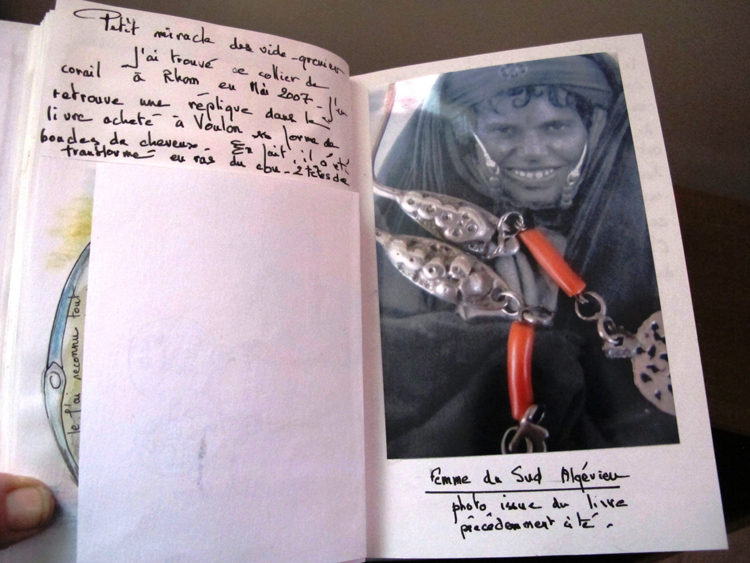 Petit miracle des vide-grenier
J'ai trouvé ce collier de
corail à Rhom en Mai 2007 - J'en
retrouve une réplique dans le
livre acheté à Voulon sous forme de
boucles de cheveux. En fait, il a été
transformé en ras du cou - 2 têtes de
Je l'ai reconnu tout
Femme du Sud Algérien
photo issue du livre
précédemment cité.